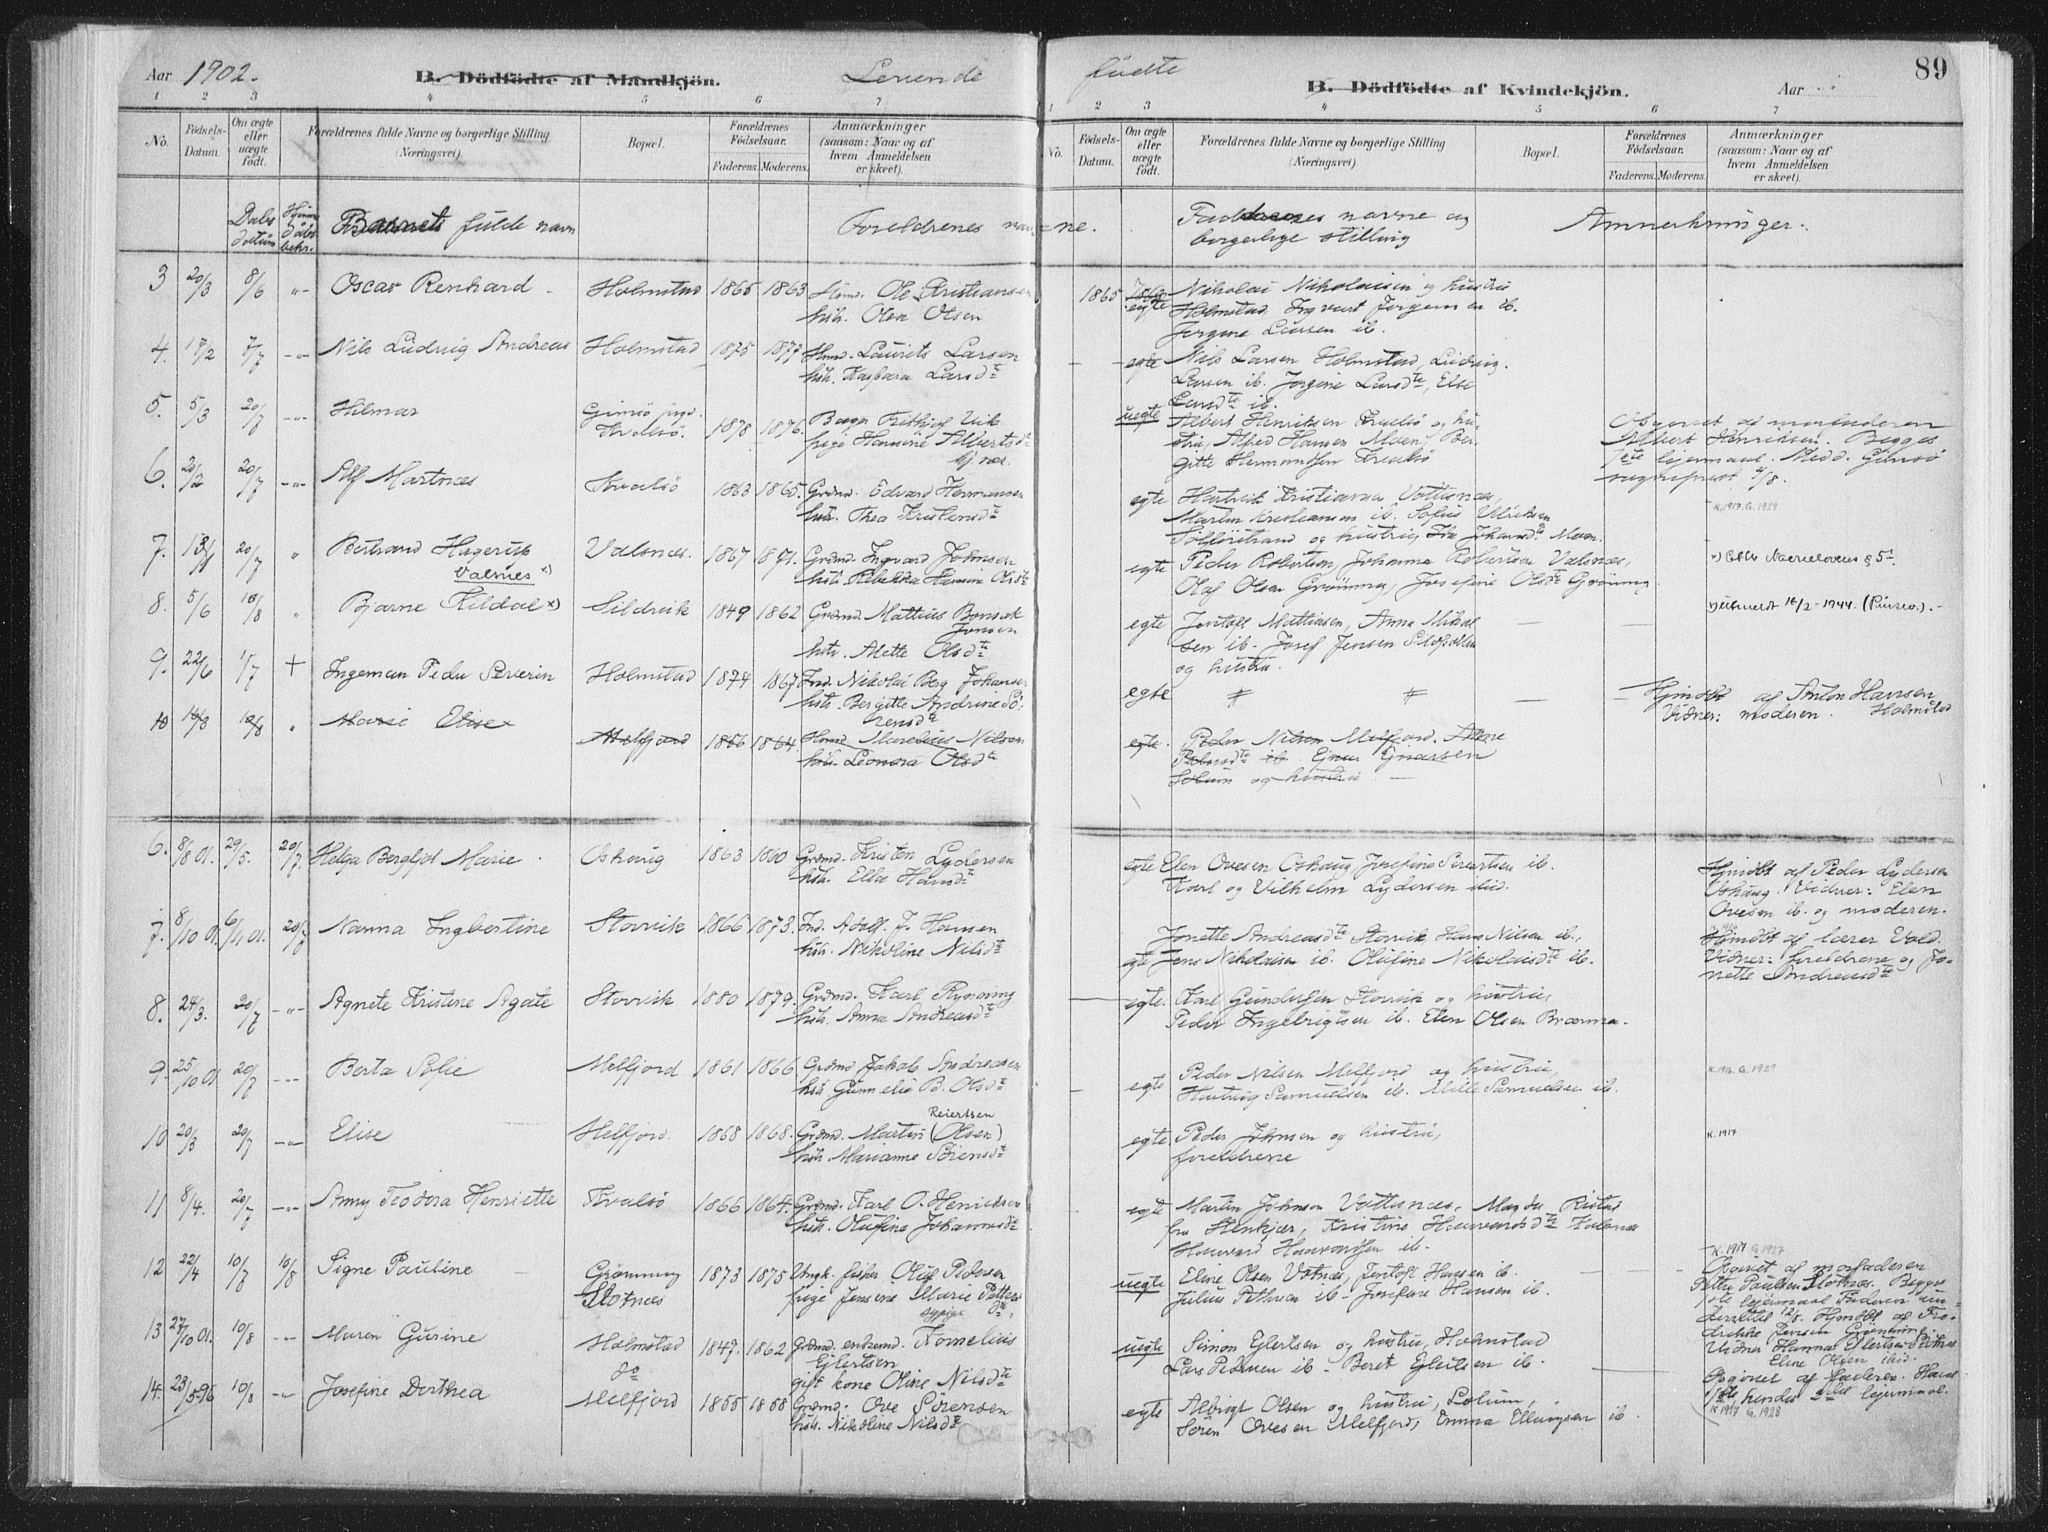 Aar 1902. B. Dödfödte af Mandkjön. Levende
födte B. Dödfödte af Kvindekjön. Aar 89
1 2 3 4 5 6 7
1 2 3 4 5 6 7
No. Födsels-Datum. Om ægte eller uægte födt. Forældrenes fulde Navne og borgerlige Stilling (Næringsvei). Bopæl. Forældrenes Födselsaar. Faderens. Moderens. Anmærkninger (saasom: Naar og af hvem Anmeldelsen er skeet).
No. Födsels-Datum. Om ægte eller uægte födt. Forældrenes fulde Navne og borgerlige Stilling (Næringsvei). Bopæl. Forældrenes Födselsaar. Faderens. Moderens. Anmærkninger (saasom: Naar og af hvem Anmeldelsen er skeet).
Daabs datum Hjemme daabs bekr. Barnets fulde navn Foreldrenes navne.
Faddernes navne og
borgerlige stilling Anmerkninger.
3 20/3 8/6 -"- Oscar Renhard - Holmstad 1865 1863 Ole Kristiansen
hstr. Olea Olsen
1865 egte Nikolai Nikolaisen og hustru
Holmstad Ingvart Jørgensen ib.
Jørgine Larsen ib.
4. 17/2 7/7 -"- Nils Ludvig Andreas Holmstad 1875 1877 Laurits Larsen
hstr. Barbara Larsdt
egte Nils Larsen Holmstad, Ludvig
Larsen ib. Jørgine Larsdte, Else
Larsdte ib.
5. 5/3 20/7 -"- Hilmar Gimsö
Kvalsö. 1878 1876. Frithjof Vik
pige Hansine Albertsdt
uegte Albert Henriksen Kvalsö og hu-
stru, Alfred Hansen Moen, Ber-
gitte Hermansen Kvalsö
Opgivet af morfaderen
Albert Henriksen. Begges
1ste leiermaal. Medd. Gimsö
sogneprest 4/8.
6. 20/2 20/7 -"- Alf Martnæs Kvalsö 1863 1865. Grdmd. Edvard Hermansen
hstr. Thea Kristensdt
egte Hartvik Kristiansen Vattnæs,
Martin Kristiansen ib. Sofus Ulriksen
og hustru, Ida Johansdt Moen.
K.1917. G.1929
7. 20/7 " Bertrand Hagerup
Valnes x) Valsnes. 1867 1871. Grdmd. Ingvard Johnsen
hstr. Rebekka Hansine Olsdt
egte Peder Robertsen, Johanna Robertsen Valsnæs,
Olaf Olsen Grönning, Josefine Olsdt Grönning
x) Efter Navnelovens § 5.
8. 5/6 10/8 " Bjarne Kildal x) Sildvik 1849 1862 Grdmd. Mattias Bonsak
Jensen
hstr. Alette Olsdt
egte Jentoft Mathisen, Anna Mikal-
sen ib. Josef Jensen
og hustru.
x) utmeldt 16/2-1944. (Pinsev.).
9. 22/6 1/7 + Ingeman Peder Severin Holmstad 1874 1867 Ind. Nikolai Berg Johansen
hstr. Bergitte Andrine Sö-
rensdt
egte # # Hjemdbt af Anton Hansen
Vidner: moderen. Holmstad
10 10/8 " Marie Elise Melfjord 1866 1864. Marelius Nilsen
hstr. Leonora Olsdt
egte. Peder Nilsen Melfjord.
ib. Einar Einarsen
Solum og hustru.
6. 8/8 01. 29/5. 20/7. Helga Bergljot Marie Oshaug 1863 1860 Grdmd. Kristen Lydersen
hstr. Ella Hansdt
egte Elen Ovesen Oshaug, Josefine Sivertsen ib.
Karl og Vilhelm Lydersen ibid.
Hjemdbt af Peder Lydersen
Oshaug. Vidner: Elen
Ovesen ib. og moderen.
7. 8/10 01. 6/11 01. 20/7 Nanna Ingbertine Storvik 1866 1873. Ind. Adolf F. Hansen
hstr. Nikoline Nilsdt
egte Jonette Andreasdt Storvik, Hans Nilsen ib.,
Jens Nikolaisen ib. Olufine Nikolaisdt ib.
Hjemdbt af lærer Vold.
Vidner: foreldrene og Jo-
nette Andreasdt
8. 24/3. 20/7 -"- Agnete Kristine Agate Storvik 1880 1879. Grdmd. Karl Rynning
hstr. Anna Andreasdt
egte. Karl Gundersen Storvik og hustru,
Peder Ingebrigtsen ib. Elen Olsen Brænna.
9. 25/10 01 20/7 -"- Berta Sofie Melfjord 1861 1866 Grdmd Jakob Andreasen
hstr. Gunnelie B. Olsdt
egte Peder Nilsen Melfjord og hustru,
Hartvig Samuelsen ib. Mille Samuelsen ib.
K.1916. G.1929
10 20/3 20/7 -"- Elise Melfjord. 1868 1868. Grdmd. Martin (Olsen) Reiertsen
hstr. Marianne Sörensdt
egte Peder Johnsen og hustru,
foreldrene
K.1917
11 8/4. 20/7 -"- Anny Teodora Henriette Kvalsö 1866 1864. Grdmd. Karl O. Henriksen
hstr. Olufine Johannesdt
egte Martin Johnsen Vattnæs, Magda Rustad
fra Stenkjær, Kristine Haavardsdt
Haavard Haavardsen ib.
K.1917 G.1927
12 22/4 10/7 10/8 Signe Pauline Grönning
Slotnæs 1873 1875 Ungk. fisker Oluf Pedersen
pige Jensine Marie Pettersdt.
uegte Eline Olsen Votnæs, Jentoft Hansen ib.
Julius Pettersen ib - Josefine Hansen ib.
Opgivet af morfaderen
Petter Paulsen Slotnæs. Begges
1ste leiermaal Faderen un-
derrettet 12/8. Hjemdbt af Fre-
drikke Jensen Grönning.
Vidner Hanna Eilertsen Slotnæs
Eline Olsen ibid.
13. 27/10 01. 10/8 -"- Maren Gurine Holmstad
do 1847. 1862 Grdmd. enkemd. Kornelius
Eilertsen
gift kone Oline Nilsdt
uegte Simon Eilertsen og hustru, Holmstad
Lars Pedersen ib - Beret Eilertsen ib.
Opgivet af faderen. Hans
1ste, hendes 2det leiermaal.
K.1917 G.1928
14. 23/5 96 10/8 -"- Josefine Dorthea Melfjord 1855 1858 Grdmd. Ove Sörensen
hstr. Nikoline Nilsdt
egte Albrigt Olsen og hustru, Solum,
Sören Ovesen Melfjord, Emma Ellingsen ib.